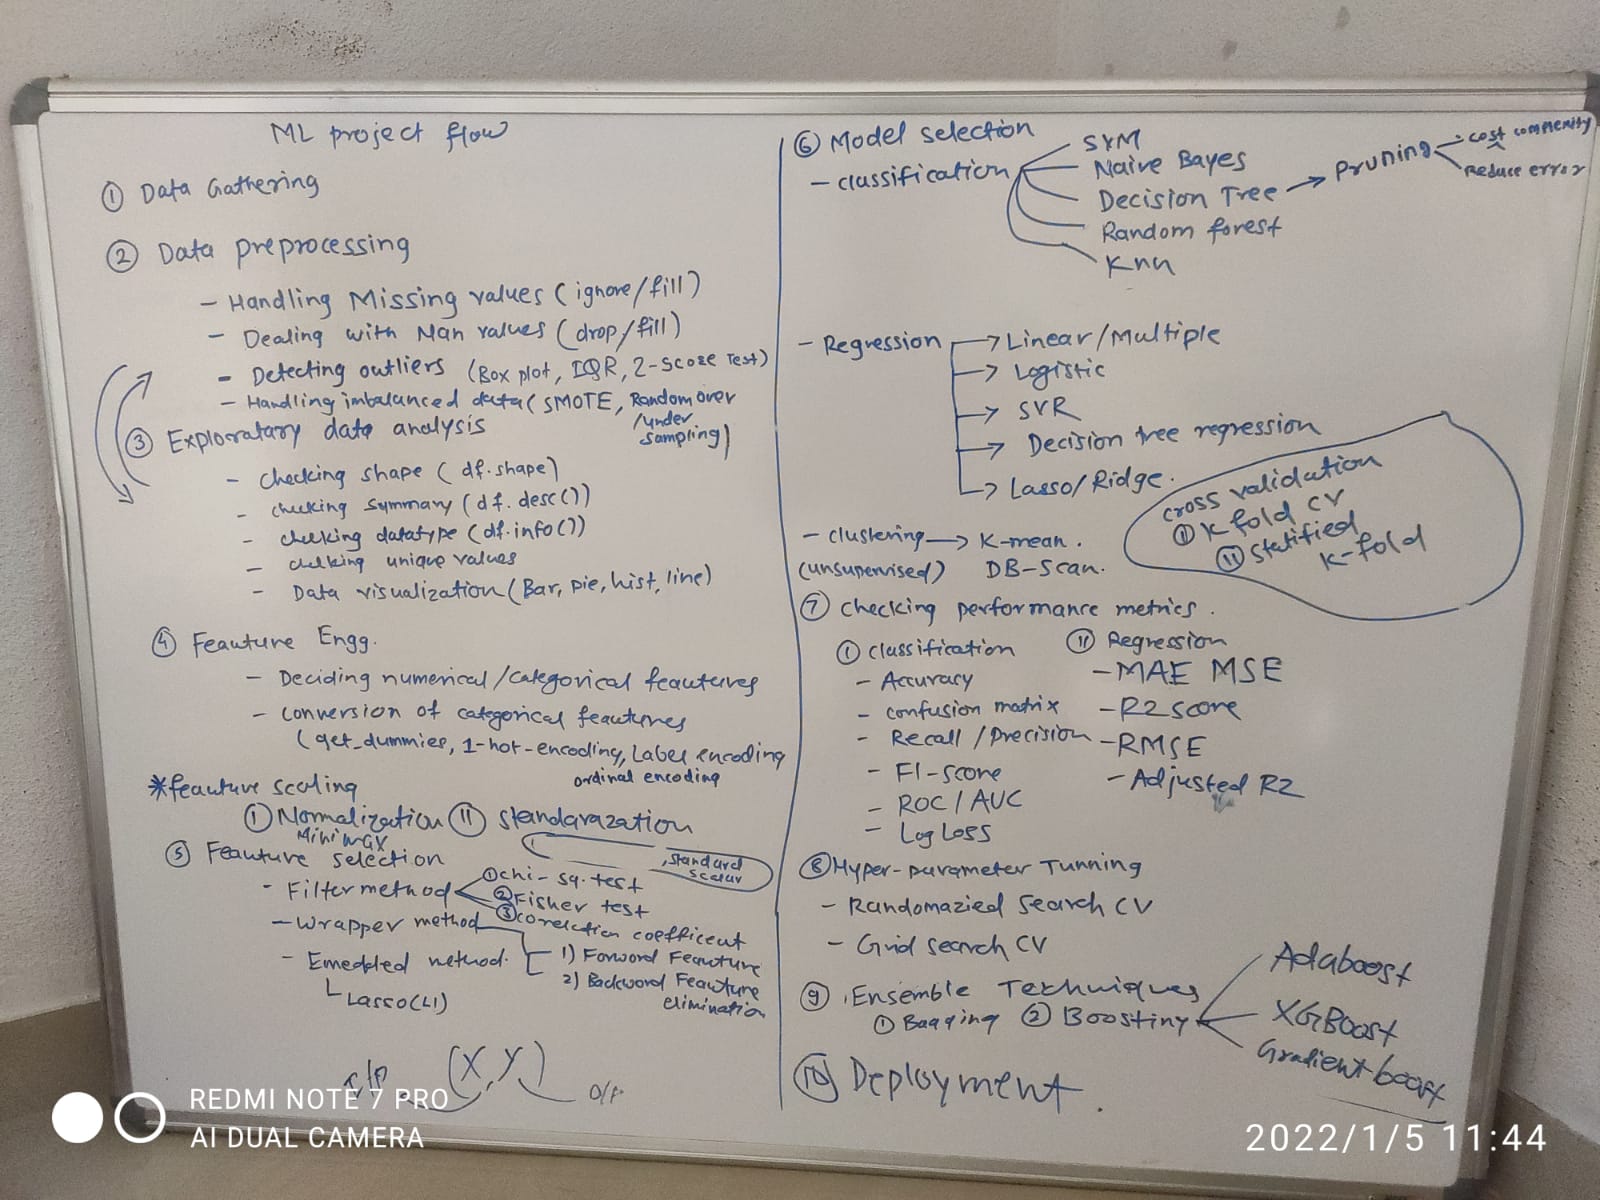 ML project flow
① Data Gathering
② Data preprocessing
- Handling Missing values (ignore/fill)
- Dealing with Nan values (drop/fill)
- Detecting outliers (Box plot, IQR, Z-score Test)
- Handling imbalanced data (SMOTE, Random over
/under
sampling)
③ Exploratary data analysis
- checking shape (df.shape)
- checking summary (df.desc())
- checking datatype (df.info())
- checking unique values
- Data visualization (Bar, pie, hist, line)
④ Feauture Engg.
- Deciding numerical/categorical feautures
- conversion of categorical feautures
(get_dummies, 1-hot-encoding, Label encoding
ordinal encoding
*feauture scaling
① Normalization ⑪ standarazation
Minimax
, standard
scalar
⑤ Feauture selection
- Filter method
① chi-sq. test
② Fisher test
③ corelation coefficent
- Wrapper method
1) Forword Feauture
2) Backword Feauture
elimination
- Emedded method.
Lasso(L1)
I/P (X, Y) O/P
⑥ Model selection
- classification
SVM
Naive Bayes
Decision Tree → Pruning
- cost complexity
- Reduce error
Random forest
Knn
- Regression → Linear/Multiple
→ Logistic
→ SVR
→ Decision tree regression
→ Lasso/Ridge.
cross validation
① K fold CV
⑪ Statified
K-fold
- clustering → K-mean.
(unsupervised) DB-Scan.
⑦ checking performance metrics.
① classification
- Accuracy
- confusion matrix
- Recall/Precision
- F1-score
- ROC/AUC
- Log Loss
⑪ Regression
- MAE MSE
- R2 score
- RMSE
- Adjusted R2
⑧ Hyper-parameter Tunning
- Randomazied Search CV
- Grid search CV
⑨ Ensemble Techniques
① Bagging ② Boosting
Adaboost
XGBoost
Gradient boost
⑩ Deployment.
REDMI NOTE 7 PRO
AI DUAL CAMERA
2022/1/5 11:44